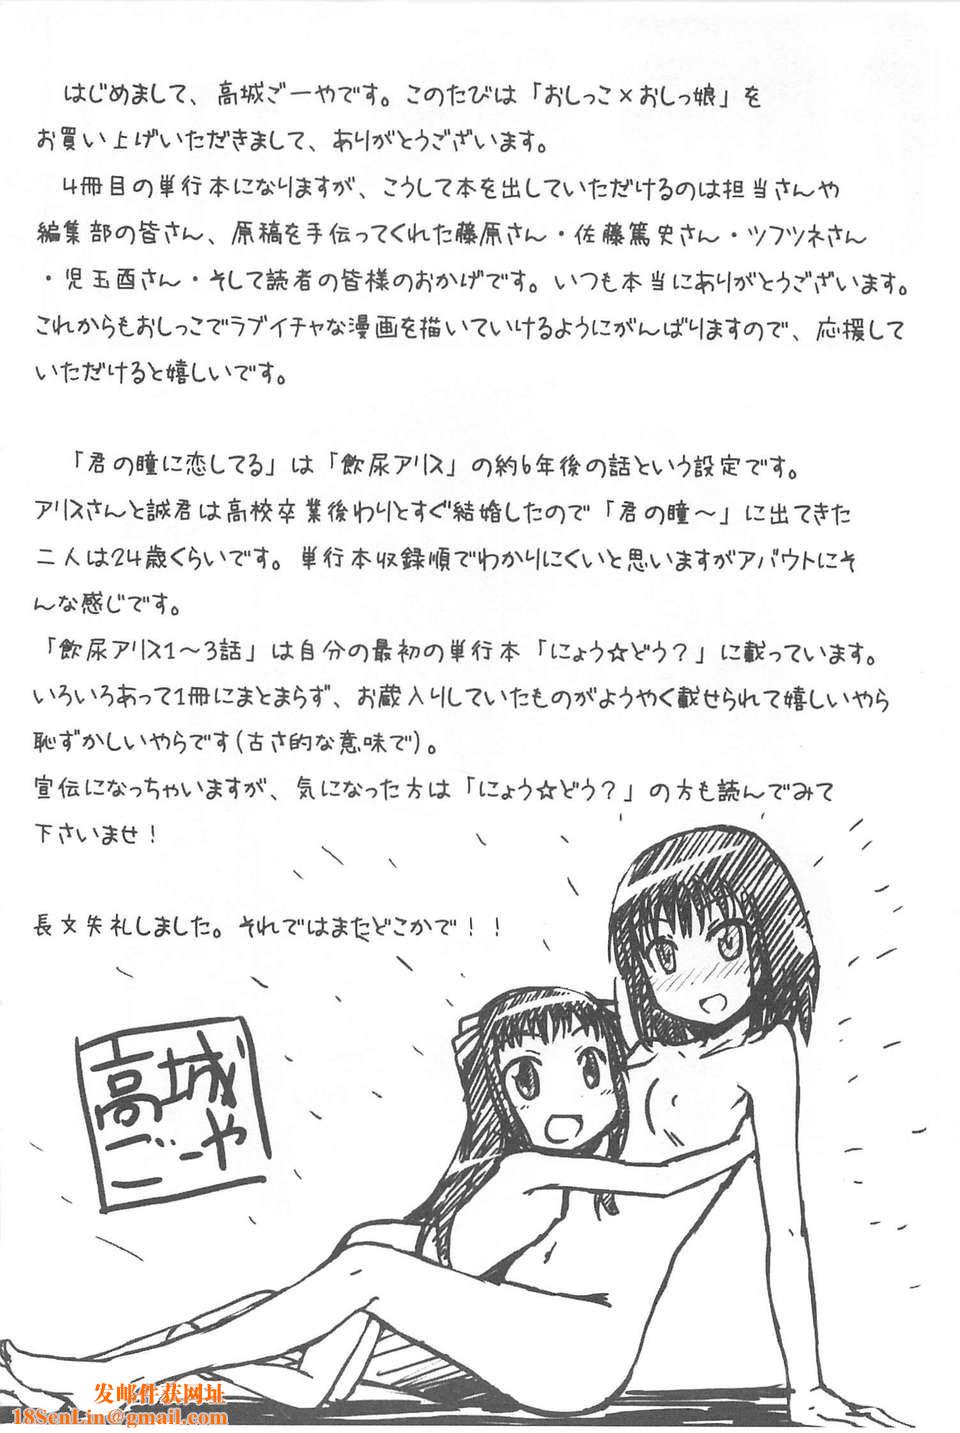 はじめまして、高城ごーやです。このたびは「おしっこ×おしっ娘」を
お買い上げいただきまして、ありがとうございます。
4冊目の単行本になりますが、こうして本を出していただけるのは担当さんや
編集部の皆さん、原稿を手伝ってくれた藤原さん・佐藤篤史さん・ツフツネさん
・児玉酉さん・そして読者の皆様のおかげです。いつも本当にありがとうございます。
これからもおしっこでラブイチャな漫画を描いていけるようにがんばりますので、応援して
いただけると嬉しいです。
「君の瞳に恋してる」は「飲尿アリス」の約6年後の話という設定です。
アリスさんと誠君は高校卒業後わりとすぐ結婚したので「君の瞳～」に出てきた
二人は24歳くらいです。単行本収録順でわかりにくいと思いますがアバウトにそ
んな感じです。
「飲尿アリス1～3話」は自分の最初の単行本「にょう☆どう?」に載っています。
いろいろあって1冊にまとまらず、お蔵入りしていたものがようやく載せられて嬉しいやら
恥ずかしいやらです(古さ的な意味で)。
宣伝になっちゃいますが、気になった方は「にょう☆どう?」の方も読んでみて
下さいませ!
長文失礼しました。それではまたどこかで!!
高城
ごーや
发邮件获网址
18SenLin@gmail.com